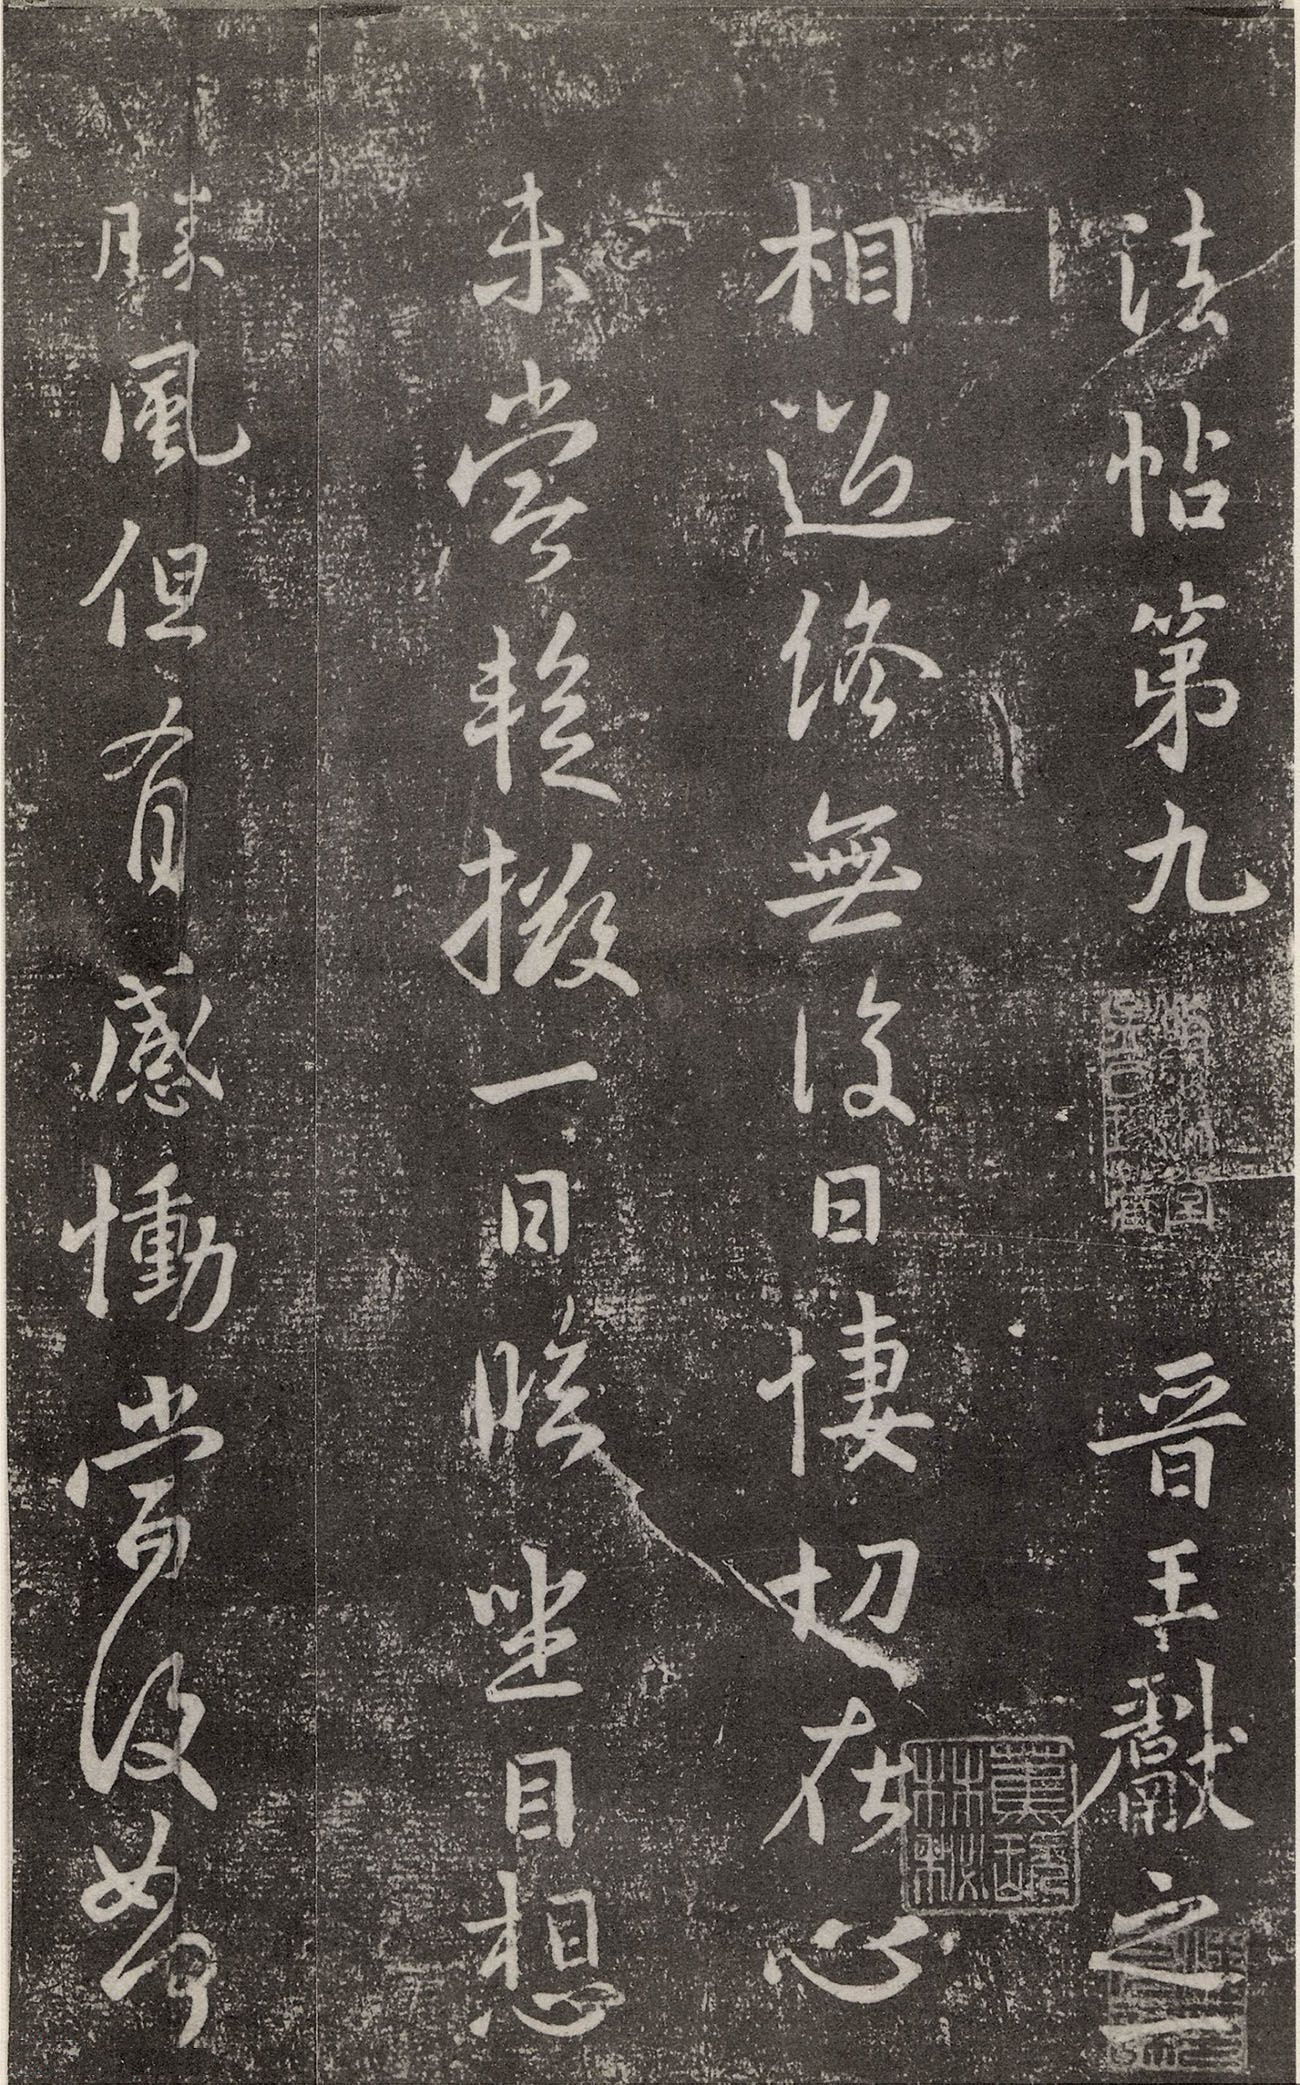 法帖第九 晉王獻之一
相過終無復日悽切在心
未嘗暫掇一日臨坐目想
勝風但有感慟當復如何